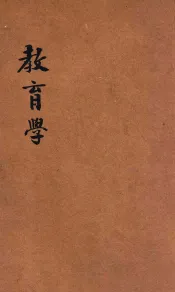 教育學